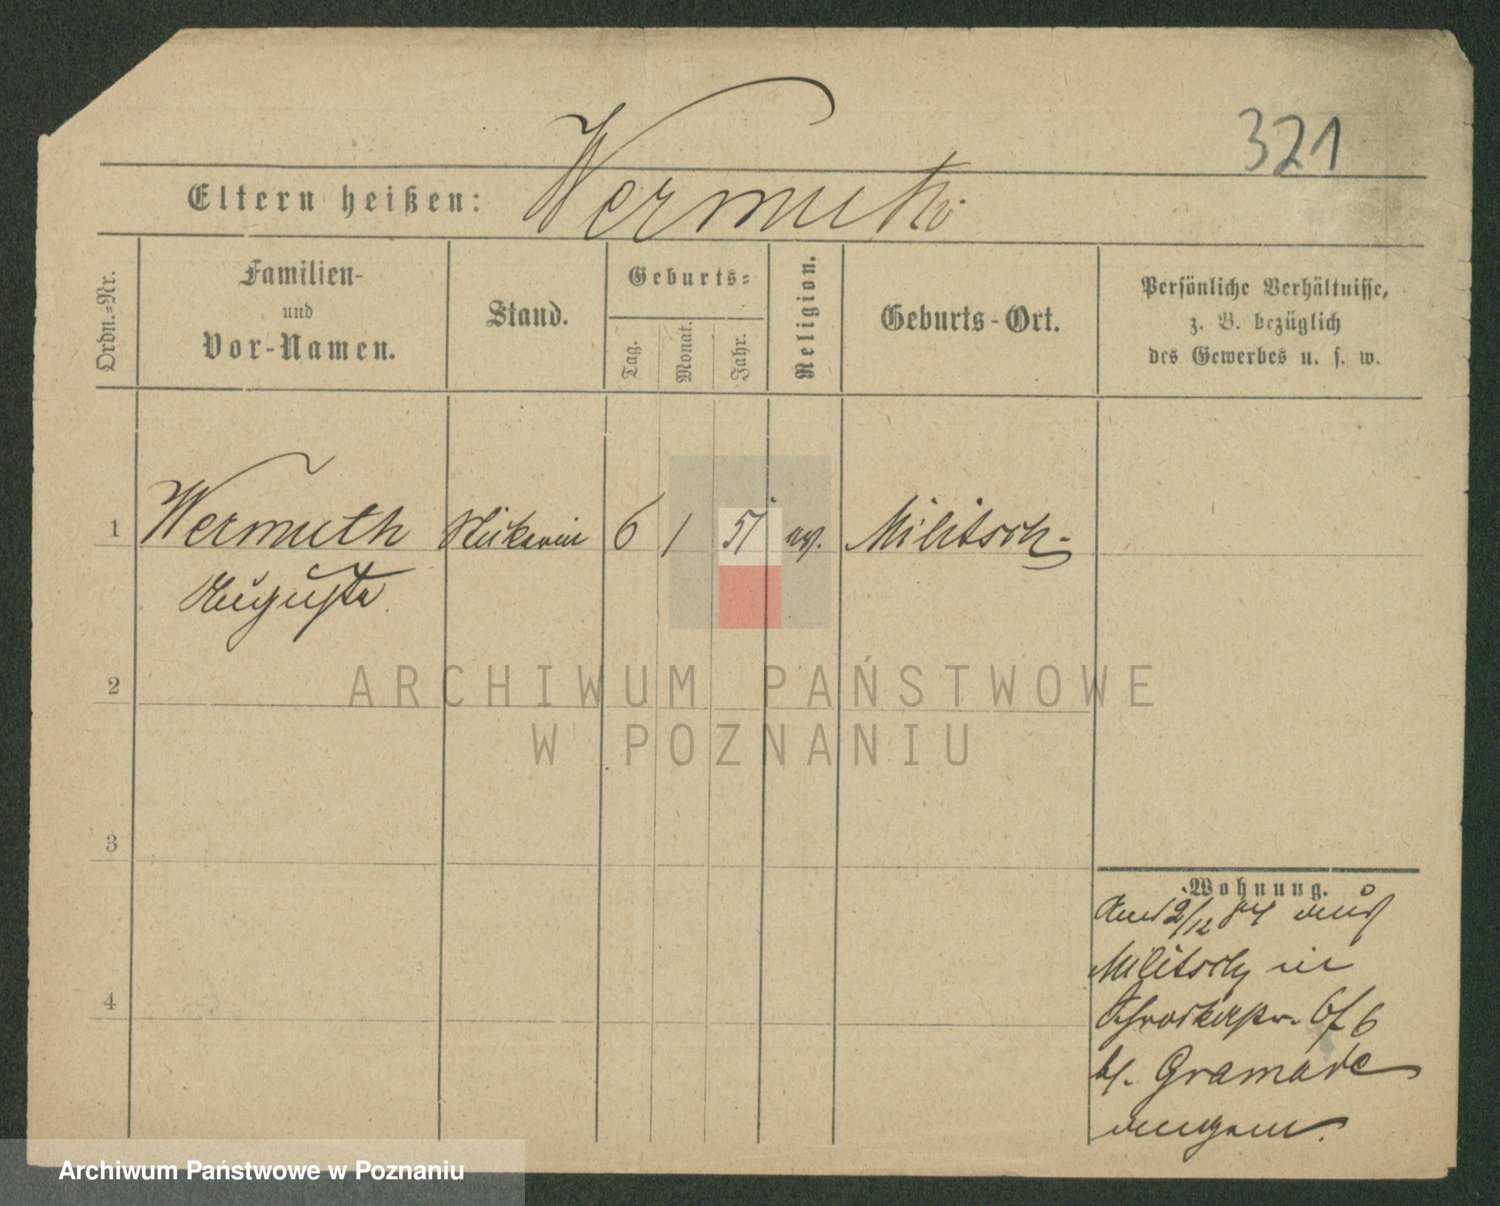 321
Eltern heißen: Wermuth
Ordn.-Nr.
Familien-
und
Vor-Namen.
Stand.
Geburts-
Tag.
Monat.
Jahr.
Religion.
Geburts-Ort.
Persönliche Verhältnisse,
z. B. bezüglich
des Gewerbes u. s. w.
1 Wermuth 6 1 51 ev. Militsch.
Auguste
2
3
4
Wohnung.
Am 2/12 84 aus
Militsch in
6/6
bf. Gramade
ARCHIWUM PAŃSTWOWE
W POZNANIU
Archiwum Państwowe w Poznaniu